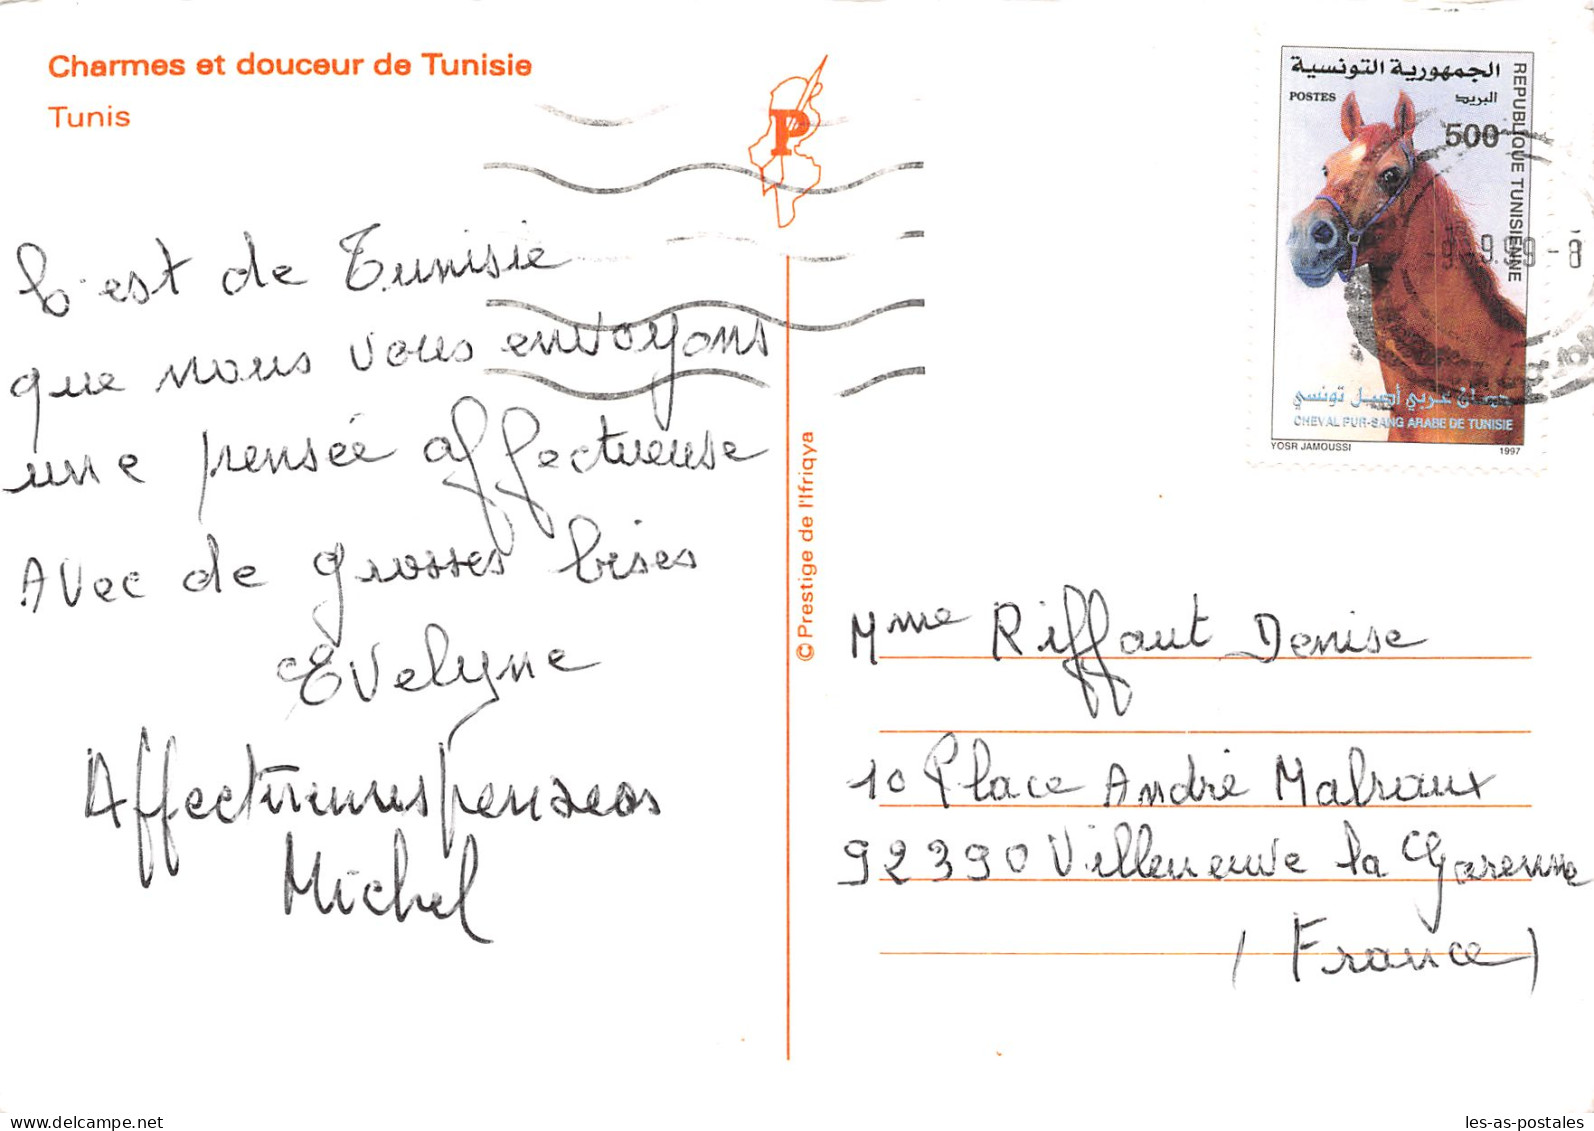 Charmes et douceur de Tunisie
Tunis
C'est de Tunisie
que nous vous envoyons
une pensée affectueuse
Avec de grosses bises
Evelyne
Affectueuses pensees
Michel
P
© Prestige de l'Ifriqya
الجمهورية التونسية
POSTES
البريد
500
REPUBLIQUE TUNISIENNE
9.99 - 8
حصان عربي أصيل تونسي
CHEVAL PUR-SANG ARABE DE TUNISIE
YOSR JAMOUSSI
1997
Mme Riffaut Denise
10 Place André Malraux
92390 Villeneuve la Garenne
(France)
delcampe.net
les-as-postales